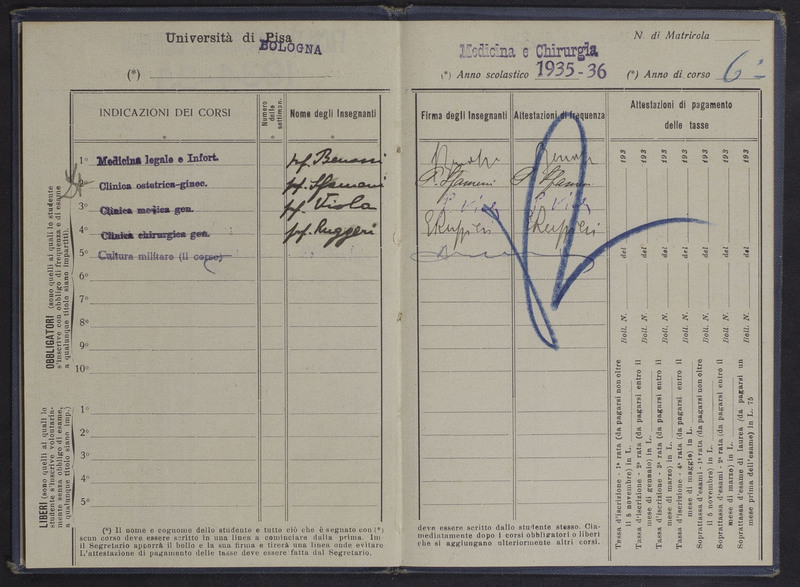 Università di Pisa
BOLOGNA
(*)
INDICAZIONI DEI CORSI
Numero delle settiman.
Nome degli Insegnanti
1° Medicina legale e Infort.
prof. Benassi
2° Clinica ostetrica-ginec.
prof. Sfameni
3° Clinica medica gen.
prof. Viola
4° Clinica chirurgica gen.
prof. Ruggeri
5° Cultura militare (II corso)
6°
7°
8°
9°
10°
1°
2°
3°
4°
5°
OBBLIGATORI (sono quelli ai quali lo studente
s'inscrive con obbligo di frequenza e di esame
a qualunque titolo siano impartiti).
LIBERI (sono quelli ai quali lo
studente s'inscrive volontaria-
mente senza obbligo di esame,
a qualunque titolo siano imp.)
(*) Il nome e cognome dello studente e tutto ciò che è segnato con (*)
scun corso deve essere scritto in una linea a cominciare dalla prima. Im
il Segretario apporrà il bollo e la sua firma e tirerà una linea onde evitare
L'attestazione di pagamento delle tasse deve essere fatta dal Segretario.
N. di Matricola
Medicina e Chirurgia
(*) Anno scolastico 1935-36
(*) Anno di corso 6°
Firma degli Insegnanti
Attestazioni di frequenza
Attestazioni di pagamento
delle tasse
P. Sfameni
P. Sfameni
P. Viola
P. Viola
E Ruggeri
E Ruggeri
193
193
193
193
193
193
193
del
del
del
del
del
del
del
Boll. N.
Boll. N.
Boll. N.
Boll. N.
Boll. N.
Boll. N.
Boll. N.
Tassa d'iscrizione - 1ª rata (da pagarsi non oltre
il 5 novembre) in L.
Tassa d'iscrizione - 2ª rata (da pagarsi entro il
mese di gennaio) in L.
Tassa d'iscrizione - 3ª rata (da pagarsi entro il
mese di marzo) in L.
Tassa d'iscrizione - 4ª rata (da pagarsi entro il
mese di maggio) in L.
Soprattassa d'esami - 1ª rata (da pagarsi non oltre
il 5 novembre) in L.
Soprattassa d'esami - 2ª rata (da pagarsi entro il
mese di marzo) in L.
Soprattassa d'esame di laurea (da pagarsi un
mese prima dell'esame) in L. 75
deve essere scritto dallo studente stesso. Cia-
mediatamente dopo i corsi obbligatori o liberi
che si aggiungano ulteriormente altri corsi.